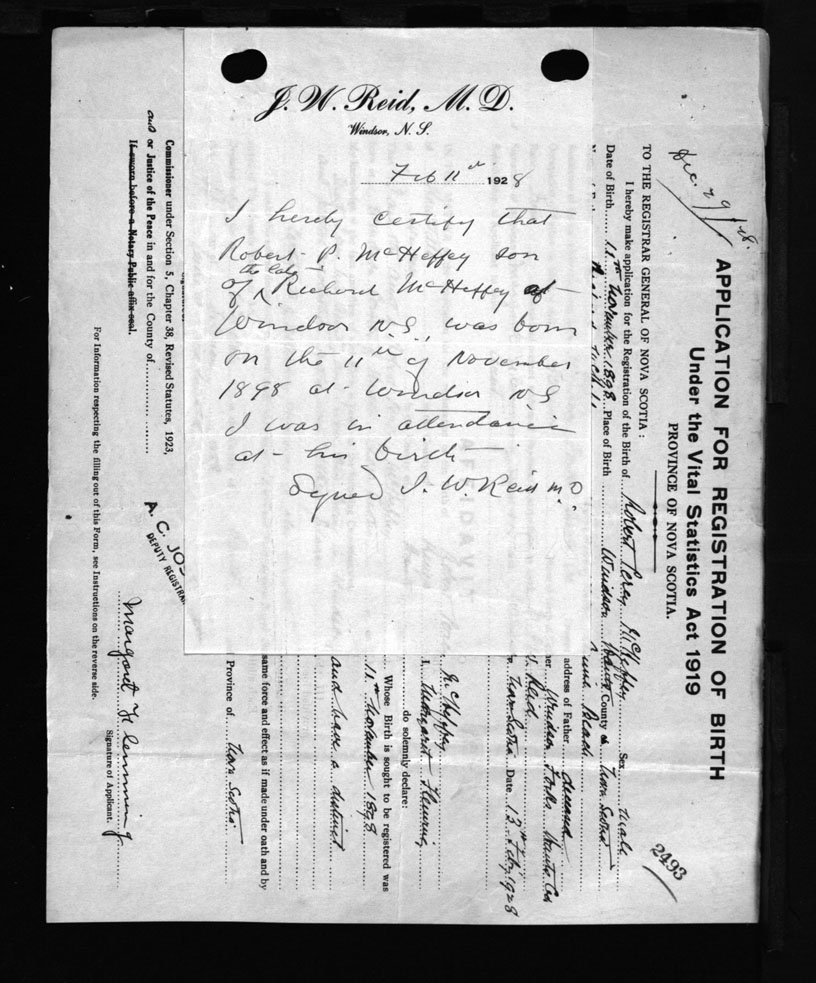 J. W. Reid, M. D.
Windsor, N. S.
Feb 11th 1928
I hereby certify that
Robert P. McHeffey son
of the late Richard McHeffey of
Windsor N.S., was born
on the 11th of November
1898 at Windsor N S
I was in attendance
at his birth
Signed J. W. Reid M.D.
Dec. 29/28.
APPLICATION FOR REGISTRATION OF BIRTH
Under the Vital Statistics Act 1919
PROVINCE OF NOVA SCOTIA.
TO THE REGISTRAR GENERAL OF NOVA SCOTIA:
I hereby make application for the Registration of the Birth of Robert Percy McHeffey Sex Male
Date of Birth 11th November 1898 Place of Birth Windsor Hants County Nova Scotia
address of Father deceased
Windsor Forks Hants Co
Reid
Nova Scotia Date 13th Feb, 1928
McHeffey
I, Margaret Fleming
do solemnly declare:
Whose Birth is sought to be registered was
11th November 1898
and have a distinct
same force and effect as if made under oath and by
Province of Nova Scotia
2493
AFFIDAVIT
Commissioner under Section 5, Chapter 38, Revised Statutes, 1923,
and or Justice of the Peace in and for the County of
If sworn before a Notary Public affix seal.
A. C. JOS
DEPUTY REGISTRAR
Margaret Flemming
Signature of Applicant.
For Information respecting the filling out of this Form, see Instructions on the reverse side.